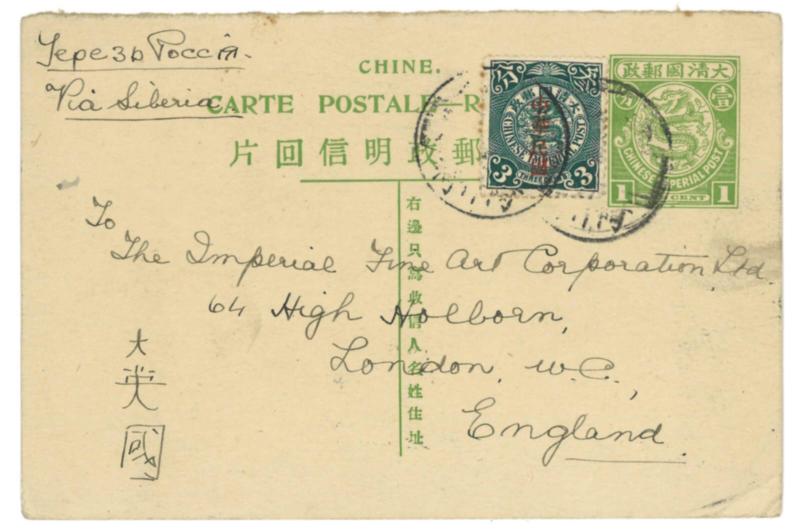 Черезъ Россію.
Via Siberia
CHINE.
CARTE POSTALE—R
郵政明信回片
大清國郵政
壹 分
CHINESE IMPERIAL POST
1 CENT 1
大清郵政
中華民國
CHINESE IMPERIAL POST
3 THREE 3
右邊只寫收信人名姓住址
To
The Imperial Fine Art Corporation Ltd.
64 High Holborn,
London, W.C.,
England.
大英國